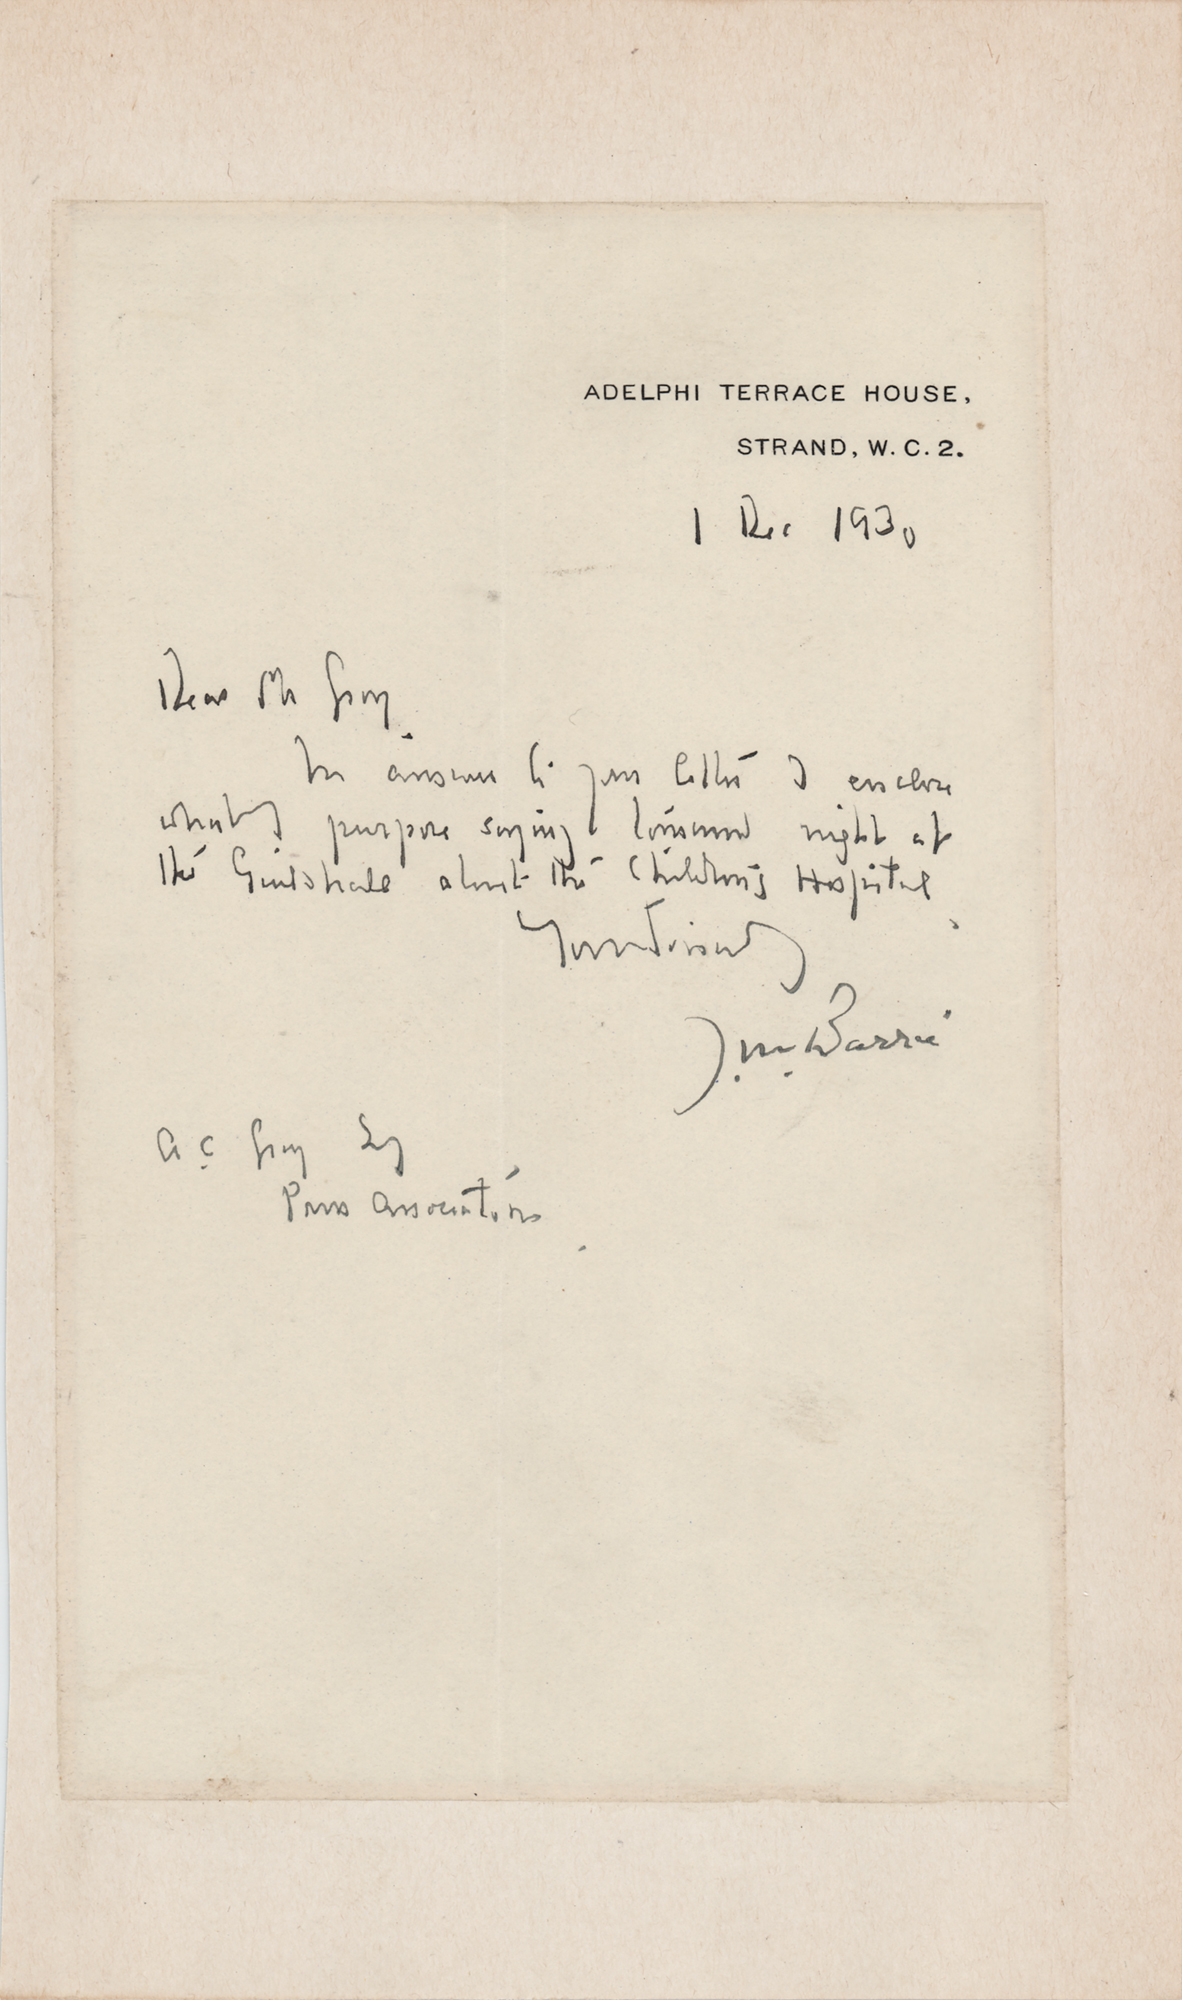 ADELPHI TERRACE HOUSE,
STRAND, W. C. 2.
1 Dec 1930
Dear Mr Gray
In answer to your letter I enclose
what I purpose saying tomorrow night at
the Guildhall about the Children's Hospital
Yours sincerely
J. M. Barrie
A C Gray Esq
Press Association